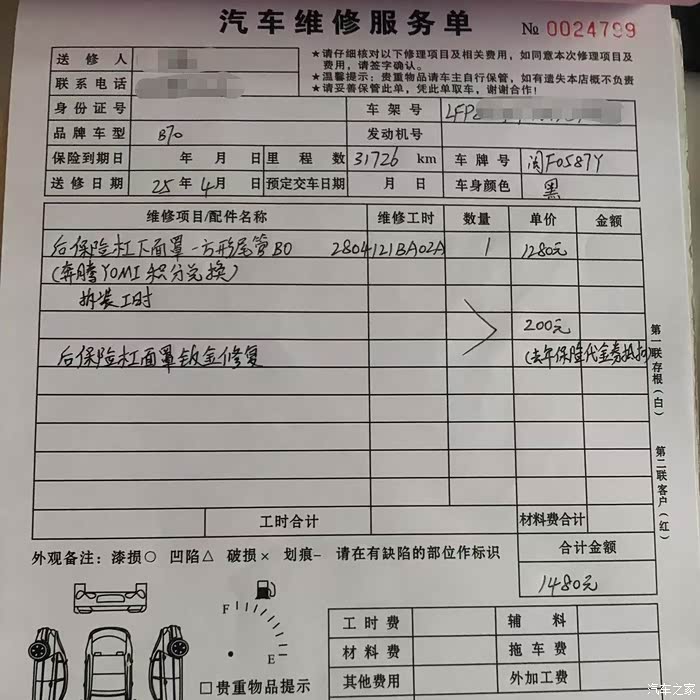 汽车维修服务单
№ 0024799
送修人
★请仔细核对以下修理项目及相关费用，如同意本次修理项目及
费用，请签字确认。
联系电话
★温馨提示：贵重物品请车主自行保管，如有遗失本店概不负责
★请妥善保管此单，凭此单取车，谢谢合作！
身份证号 车架号 LFP
品牌车型 B70 发动机号
保险到期日 年 月 日 里程数 31726 km 车牌号 闽F0587Y
送修日期 25年4月 日 预定交车日期 月 日 车身颜色 黑
维修项目/配件名称 维修工时 数量 单价 金额
后保险杠下面罩-方形尾管B0 2804121BA02A 1 1280元
(奔腾YOMI积分兑换)
拆装工时
200元
后保险杠面罩钣金修复 (去年保险代金券抵扣)
第一联存根（白）
第二联客户（红）
工时合计 材料费合计
外观备注：漆损○ 凹陷△ 破损× 划痕- 请在有缺陷的部位作标识
合计金额
1480元
F
E
□贵重物品提示
工时费 辅料
材料费 拖车费
其他费用 外加工费
汽车之家